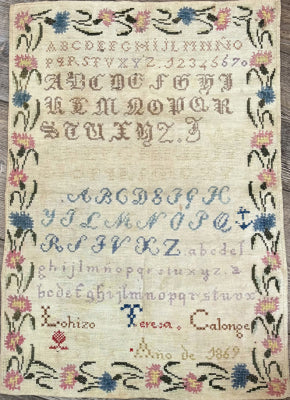 ABCDEFGHIJLMNNO
PQRSTVXYZ.1234567o
ABCDEFGHI
JLMNOPQR
STUXYZ.J
ABCDEFGH
YILMNOPQ
RSTVXZ abcdef
ghijlmnopqrstuxyz.a
bcdefghijlmnopqrstuvx
Lohizo Teresa. Calonge
Año de 1869